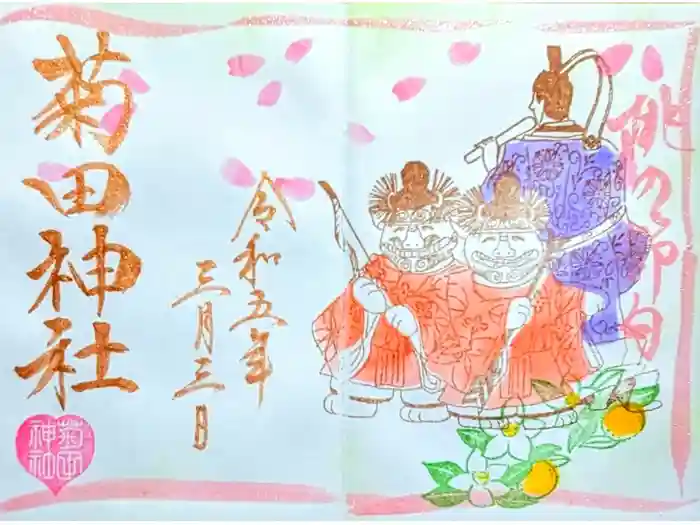 桃の節句
令和五年
三月三日
菊田神社
菊田
神社